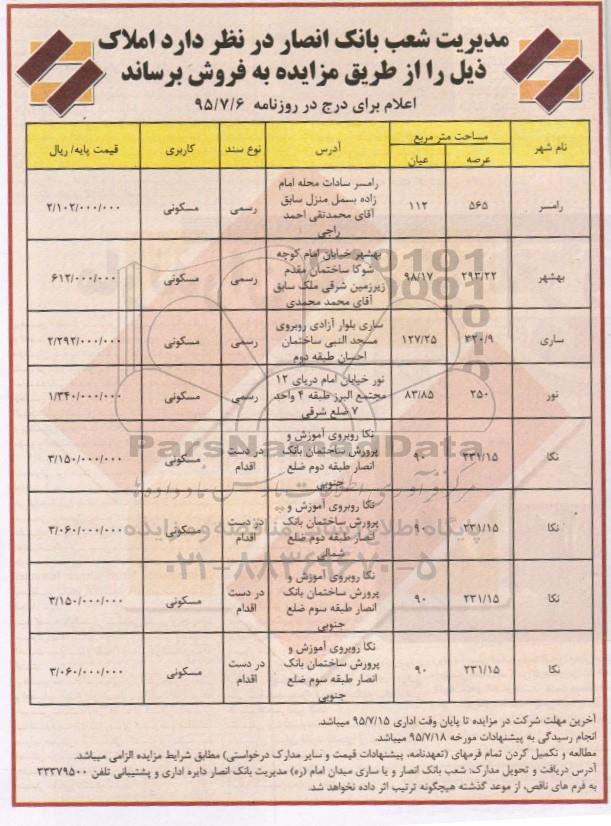 مدیریت شعب بانک انصار در نظر دارد املاک
ذیل را از طریق مزایده به فروش برساند
اعلام برای درج در روزنامه ۹۵/۷/۶
نام شهر | مساحت متر مربع | آدرس | نوع سند | کاربری | قیمت پایه/ ریال
عرصه | عیان
رامسر | ۵۶۵ | ۱۱۲ | رامسر سادات محله امام زاده بسمل منزل سابق آقای محمدتقی احمد راجی | رسمی | مسکونی | ۲/۱۰۲/۰۰۰/۰۰۰
بهشهر | ۲۹۳/۲۲ | ۹۸/۱۷ | بهشهر خیابان امام کوچه شوکا ساختمان مقدم زیرزمین شرقی ملک سابق آقای محمد محمدی | رسمی | مسکونی | ۶۱۲/۰۰۰/۰۰۰
ساری | ۴۳۰/۹ | ۱۲۷/۲۵ | ساری بلوار آزادی روبروی مسجد النبی ساختمان احسان طبقه دوم | رسمی | مسکونی | ۲/۲۹۲/۰۰۰/۰۰۰
نور | ۲۵۰ | ۸۳/۸۵ | نور خیابان امام دریای ۱۲ مجتمع البرز طبقه ۴ واحد ۷ ضلع شرقی | رسمی | مسکونی | ۱/۳۴۰/۰۰۰/۰۰۰
نکا | ۲۳۱/۱۵ | ۹۰ | نکا روبروی آموزش و پرورش ساختمان بانک انصار طبقه دوم ضلع جنوبی | در دست اقدام | مسکونی | ۳/۱۵۰/۰۰۰/۰۰۰
نکا | ۲۳۱/۱۵ | ۹۰ | نکا روبروی آموزش و پرورش ساختمان بانک انصار طبقه دوم ضلع شمالی | در دست اقدام | مسکونی | ۳/۰۶۰/۰۰۰/۰۰۰
نکا | ۲۳۱/۱۵ | ۹۰ | نکا روبروی آموزش و پرورش ساختمان بانک انصار طبقه سوم ضلع جنوبی | در دست اقدام | مسکونی | ۳/۱۵۰/۰۰۰/۰۰۰
نکا | ۲۳۱/۱۵ | ۹۰ | نکا روبروی آموزش و پرورش ساختمان بانک انصار طبقه سوم ضلع جنوبی | در دست اقدام | مسکونی | ۳/۰۶۰/۰۰۰/۰۰۰
آخرین مهلت شرکت در مزایده تا پایان وقت اداری ۹۵/۷/۱۵ میباشد.
انجام رسیدگی به پیشنهادات مورخه ۹۵/۷/۱۸ میباشد.
مطالعه و تکمیل کردن تمام فرمهای (تعهدنامه، پیشنهادات قیمت و سایر مدارک درخواستی) مطابق شرایط مزایده الزامی میباشد.
آدرس دریافت و تحویل مدارک: شعب بانک انصار و یا ساری میدان امام (ره) مدیریت بانک انصار دایره اداری و پشتیبانی تلفن ۳۳۳۷۹۵۰۰
به فرم های ناقص، از موعد گذشته هیچگونه ترتیب اثر داده نخواهد شد.
ParsNamadData
مرکز فرآوری اطلاعات پارس نماد داده ها
پایگاه اطلاع رسانی مناقصه و مزایده
۰۲۱-۸۸۳۴۹۶۷۰-۵